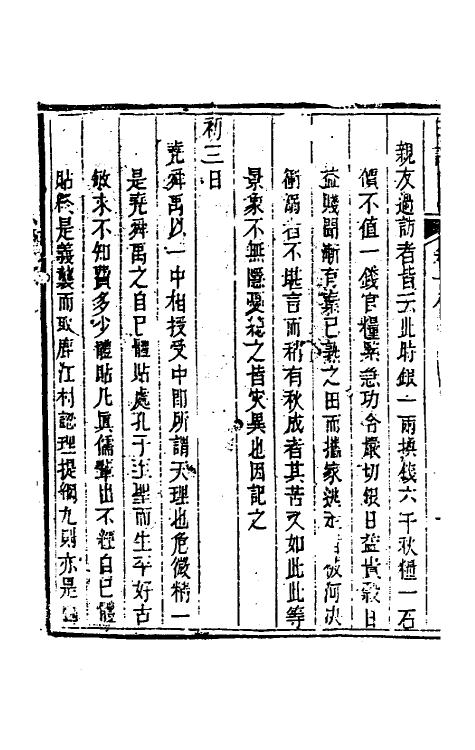 親友過訪者皆云此時銀一兩換錢六千秋糧一石
價不值一錢官糧緊急功令嚴切銀日益貴穀日
益賤聞漸有棄已熟之田而攜家逃 被河決
衝溺者不堪言而稍有秋成者其苦又如此此等
景象不無隱憂 之皆災異也因記之
初三日
堯舜禹以一中相授受中即所謂天理也危微精一
是堯舜禹之自己體貼處孔子生聖而生平好古
敏求不知費多少體貼凡眞儒輩出不經自己體
貼終是義襲而取 江村認理提綱九則亦是